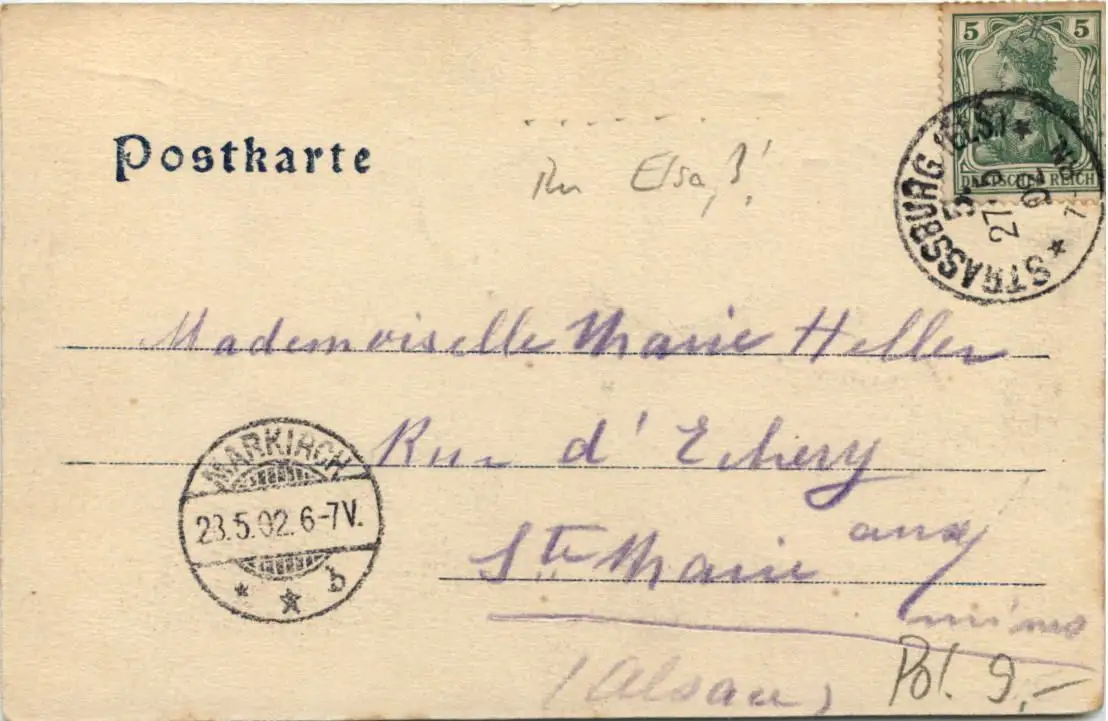 5 5
DEUTSCHES REICH
STRASSBURG (ELS.)
27.5
02
Postkarte
Mademoiselle Marie Heller
Rue d'Echery
Ste Marie aux
mines
(Alsace)
MARKIRCH
28.5.02.6-7V.
* * b
Pol. 9,-